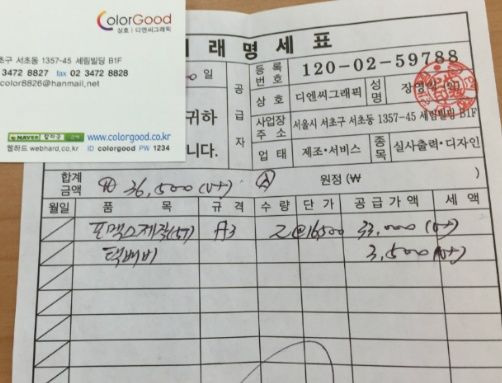 ColorGood
상호 | 디엔씨그래픽
초구 서초동 1357-45 세림빌딩 B1F
3472 8827 fax 02 3472 8828
color8826@hanmail.net
NAVER www.colorgood.co.kr
웹하드 webhard.co.kr ID colorgood PW 1234
래명세표
일
귀하
니다.
공급자
등록번호 120-02-59788
상호 디엔씨그래픽 성명
사업장주소 서울시 서초구 서초동 1357-45 세림빌딩 B1F
업태 제조·서비스 종목 실사출력·디자인
합계금액 36,500 (v+) 원정 (₩ )
월일 품목 규격 수량 단가 공급가액 세액
포맥스제작(5T) A3 2 @16500 33,000 (v+)
택배비 3,500 (v+)